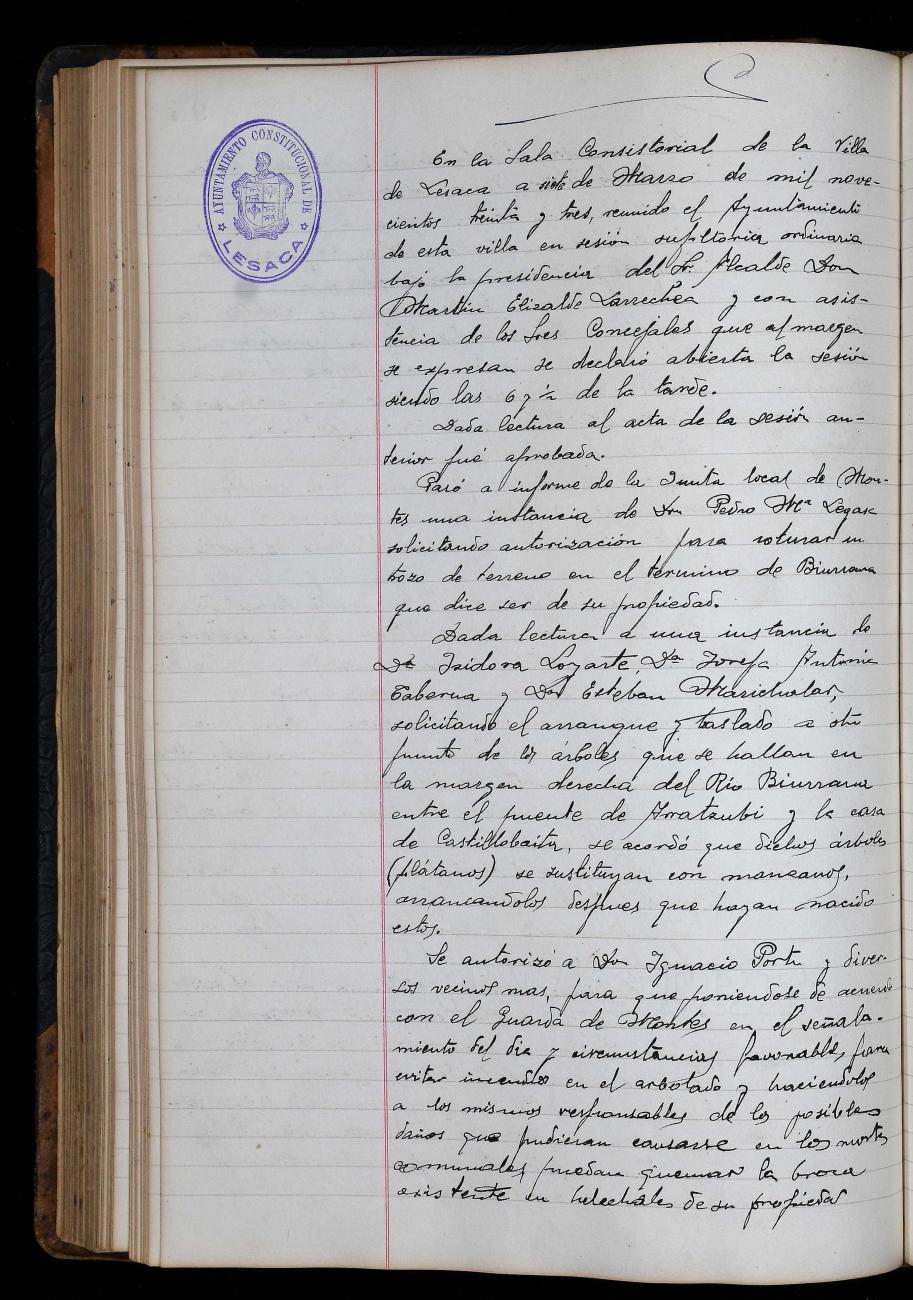 AYUNTAMIENTO CONSTITUCIONAL DE
LESACA
En la Sala Consistorial de la Villa
de Lesaca a siete de Marzo de mil nove-
cientos treinta y tres, reunido el Ayuntamiento
de esta villa en sesión supltoria ordinaria
bajo la presidencia del Sr. Alcalde Don
Martin Elizalde Larrechea y con asis-
tencia de los Sres Concejales que al margen
se expresan se declaró abierta la sesión
siendo las 6 y ½ de la tarde.
Dada lectura al acta de la sesión an-
terior fué aprobada.
Pasó a informe de la Junta local de Mon-
tes una instancia de Dn Pedro Mª Legasa
solicitando autorización para roturar un
trozo de terreno en el termino de Biurrana
que dice ser de su propiedad.
Dada lectura a una instancia de
Dª Isidora Loyarte, Dª Josefa Antonia
Taberna y Don Esteban Marichalar,
solicitando el arranque y taslado a otro
punto de los árboles que se hallan en
la margen derecha del Río Biurrana
entre el puente de Arratzubi y la casa
de Castillobaita, se acordó que dichos árboles
(plátanos) se sustituyan con manzanos,
arrancandolos despues que hayan nacido
estos.
Se autorizó a Dn Ignacio Portu y diver-
sos vecinos mas, para que poniendose de acuerdo
con el Guarda de Montes en el señala-
miento del dia y circunstancias favorables, para
evitar incendios en el arbolado y haciendolos
a los mismos responsables de los posibles
daños que pudieran causarse en los montes
comunales puedan quemar la broza
existente en helechales de su propiedad